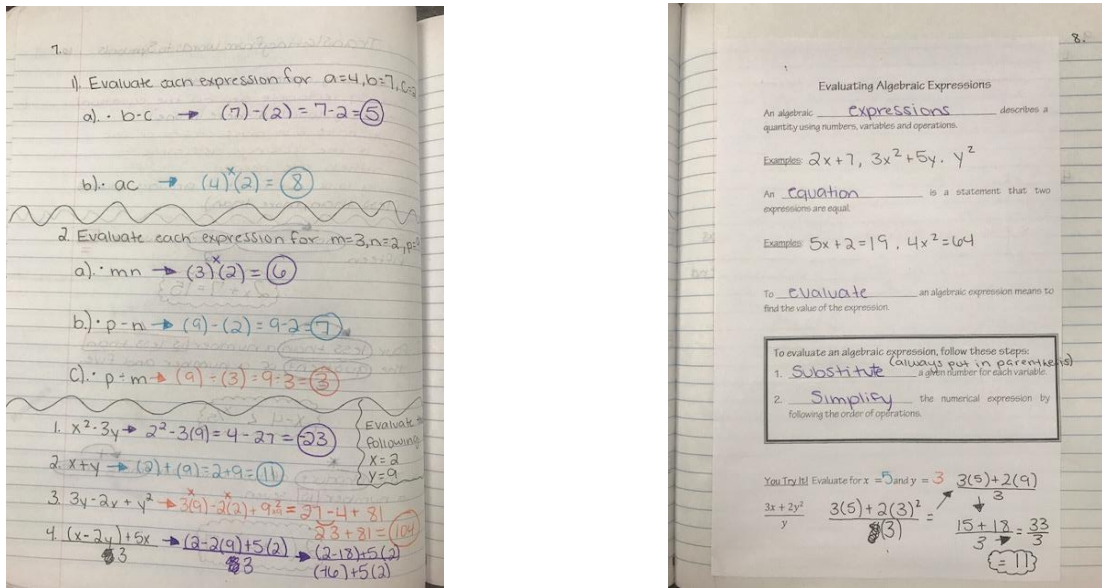 7.
1). Evaluate each expression for a=4, b=7, c=2
a). · b-c → (7)-(2) = 7-2 = 5
b). · ac → (4)x(2) = 8
2. Evaluate each expression for m=3, n=2, p=
a). · mn → (3)x(2) = 6
b.) · p-n → (9)-(2) = 9-2=7
C). · p÷m → (9)÷(3)=9÷3=3
Evaluate
following
x=2
y=9
1. x²-3y → 2²-3(9)=4-27=-23
2. x+y → (2)+(9)=2+9=11
3. 3y-2x+y² → 3x(9)-2x(2)+9² = 27-4+81
23+81=104
4. (x-2y)+5x → (2-2(9)+5(2) → (2-18)+5(2)
3 3 (-16)+5(2)
8.
Evaluating Algebraic Expressions
An algebraic expressions describes a
quantity using numbers, variables and operations.
Examples: 2x+7, 3x²+5y. y²
An equation is a statement that two
expressions are equal.
Examples: 5x+2=19, 4x²=64
To evaluate an algebraic expression means to
find the value of the expression.
To evaluate an algebraic expression, follow these steps:
(always put in parenthesis)
1. Substitute a given number for each variable.
2. Simplify the numerical expression by
following the order of operations.
You Try It! Evaluate for x =5 and y = 3
3x + 2y²
y
3(5)+2(3)²
(3)
=
3(5)+2(9)
3
15+18
3
= 33
3
= 11